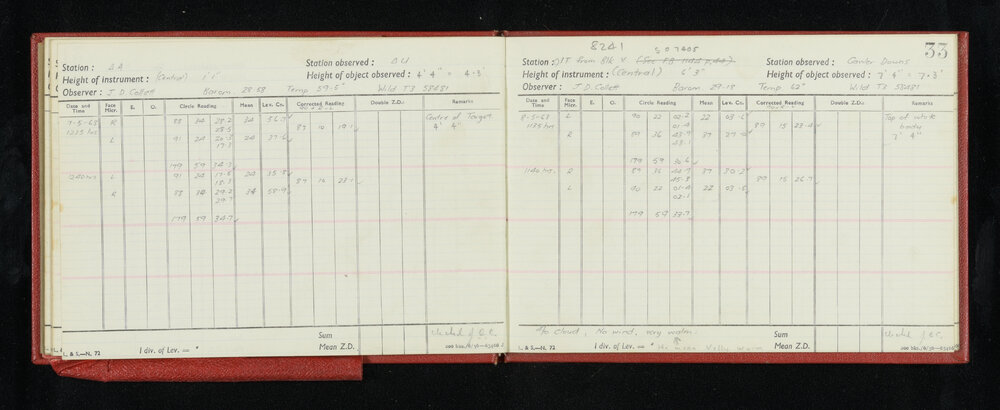 Station : ΔA Station observed : ΔU
Height of instrument : (Central) Height of object observed : 4' 4" = 4·3'
Observer : J. D. Collett Barom. 28·58 Temp 59·5° Wild T3 58481
Date and Time Face Micr. E. O. Circle Reading Mean Lev. Cn. Corrected Reading Double Z.D. Remarks
7-5-63 R 88 34 28·2 34 56·7 Centre of Target
1235 hrs 28·5 89 10 19·1 4' 4"
L 91 24 20·3 24 37·6
17·3
179 59 34·3
1240 hrs L 91 24 17·5 24 35·8
18·3 89 10 23·1
R 88 34 29·2 34 58·9
29·7
179 59 34·7
Sum
Mean Z.D.
L. & S.—N. 72 1 div. of Lev. = "
8241 S O 7405
33
Station : from Blk V Station observed : Gawler Downs
Height of instrument : (Central) 6' 3" Height of object observed : 7' 4" = 7·3'
Observer : J. D. Collett Barom 29·18 Temp 62° Wild T3 58481
Date and Time Face Micr. E. O. Circle Reading Mean Lev. Cn. Corrected Reading Double Z.D. Remarks
8-5-63 L 90 22 02·2 22 03·6 Top of white
1135 hrs 01·4 89 15 23·4 body
R 89 36 43·9 37 27·0 7' 4"
43·1
179 59 30·6
1140 hrs R 89 36 44·9 37 30·2
45·3 89 15 26·7
L 90 22 01·4 22 03·5
02·1
179 59 33·7
cloud, No wind, very warm.
Sum
Mean Z.D.
L. & S.—N. 72 1 div. of Lev. = " He mean Velly warm